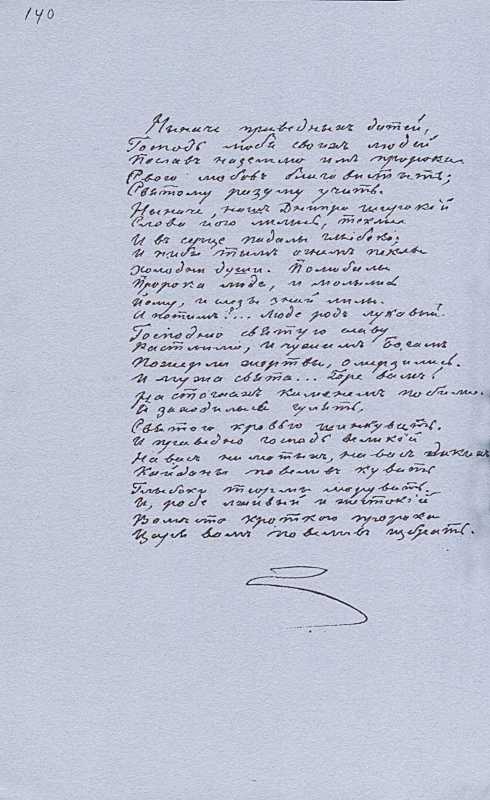 140
Ныначе праведныхъ дѣтей,
Господь любя своихъ людей
Пославъ наземлю имъ пророка
Свого любовъ благовиститъ;
Святому разуму учить.
Ныначе, нашъ Днипро широкій
Слова його лилысь, теклы
И въ серце падалы глыбоко;
И ныбы тымъ огнемъ пеклы
Холодни души. Полюбылы
Пророка люде, и молылы
Йому, и слёзы лылы.
И потимъ!... Люде родъ лукавый
Господню святую славу
Растлылы, и чужимъ Богамъ
Пожерлы жертвы, омерзилысь.
И мужа свята... Горе вамъ!
На стогнахъ каменемъ побылы.
И заходылысь гулять,
Святого кровью шинкувать.
И праведно господь великій
На васъ на лютыхъ, на васъ дикихъ
Кайданы повеливъ кувать
Глыбоки тюрмы муруватъ.
И, роде лживый и жестокій
Вомъсто кроткого пророка
Царя вамъ повеливъ избрать.